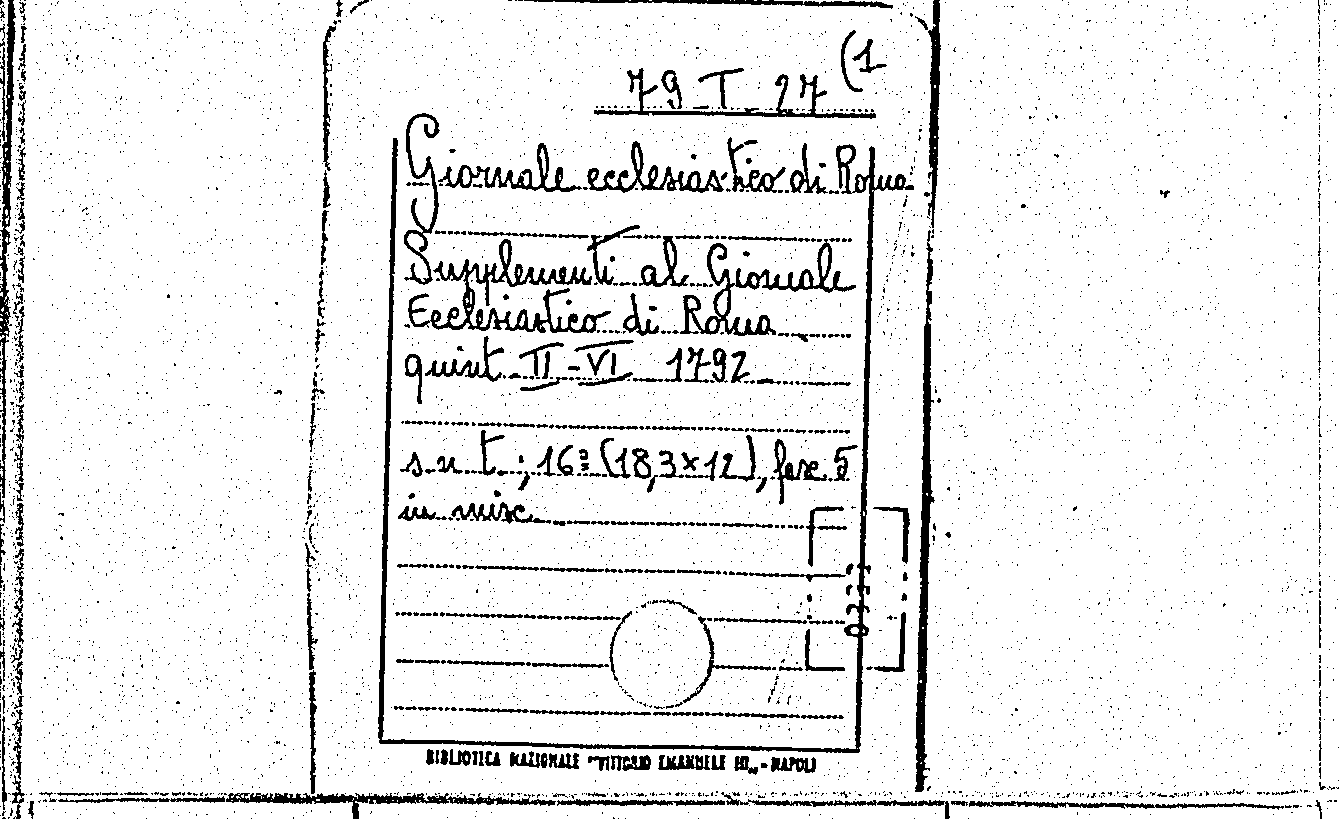 79 T. 27 (1
Giornale ecclesiastico di Roma
Supplementi al Giornale
Ecclesiastico di Roma
quint. II-VI 1792
s. n. t.; 16º (18,3x12), fasc. 5
in misc.
0331
BIBLIOTECA NAZIONALE "VITTORIO EMANUELE III„ - NAPOLI